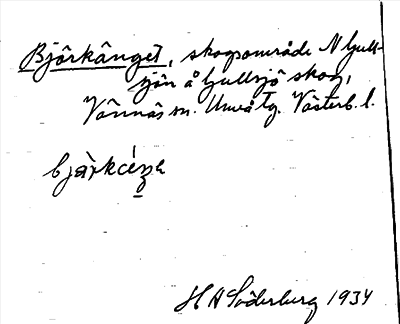 Björkänget, skogsområde N Gull-
sjön å Gullsjö skog,
Vännäs sn. Umeå tg. Västerb. l.
H A Söderburg 1934